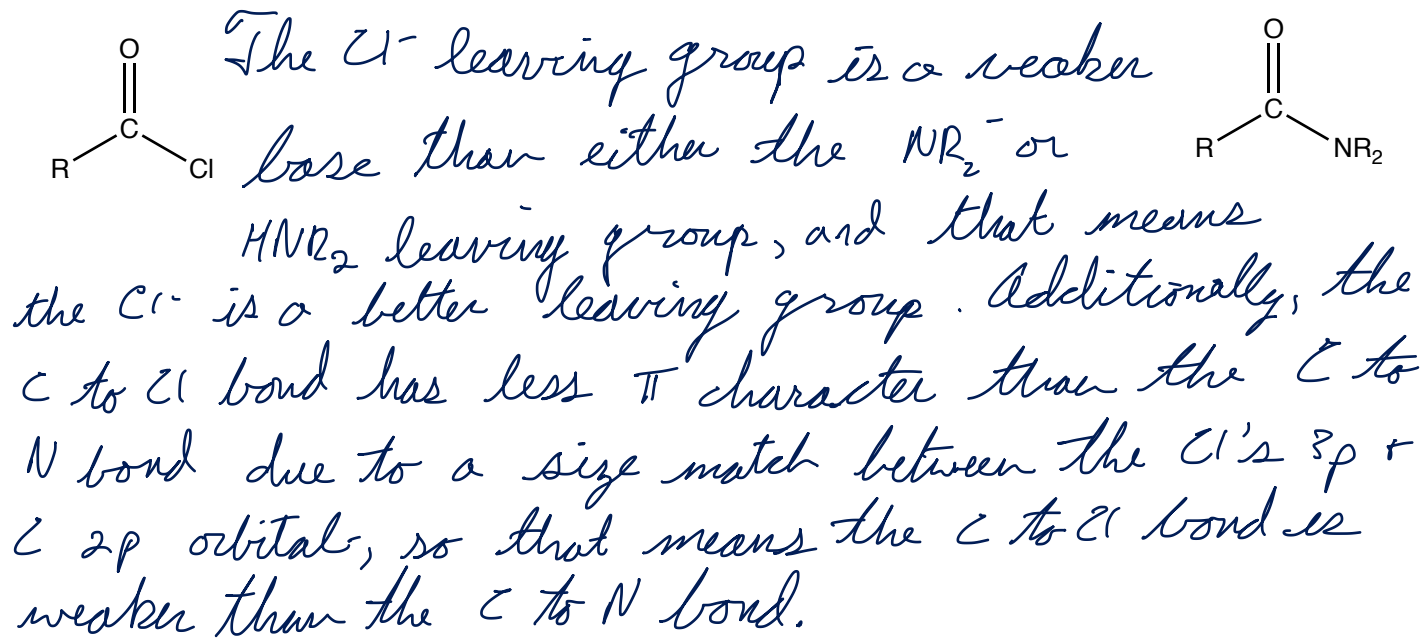 The Cl⁻ leaving group is a weaker
base than either the NR₂⁻ or
HNR₂ leaving group, and that means
the Cl⁻ is a better leaving group. Additionally, the
C to Cl bond has less π character than the C to
N bond due to a size match between the Cl's 3p +
C 2p orbitals, so that means the C to Cl bond is
weaker than the C to N bond.
O
C
R
Cl
O
C
R
NR₂